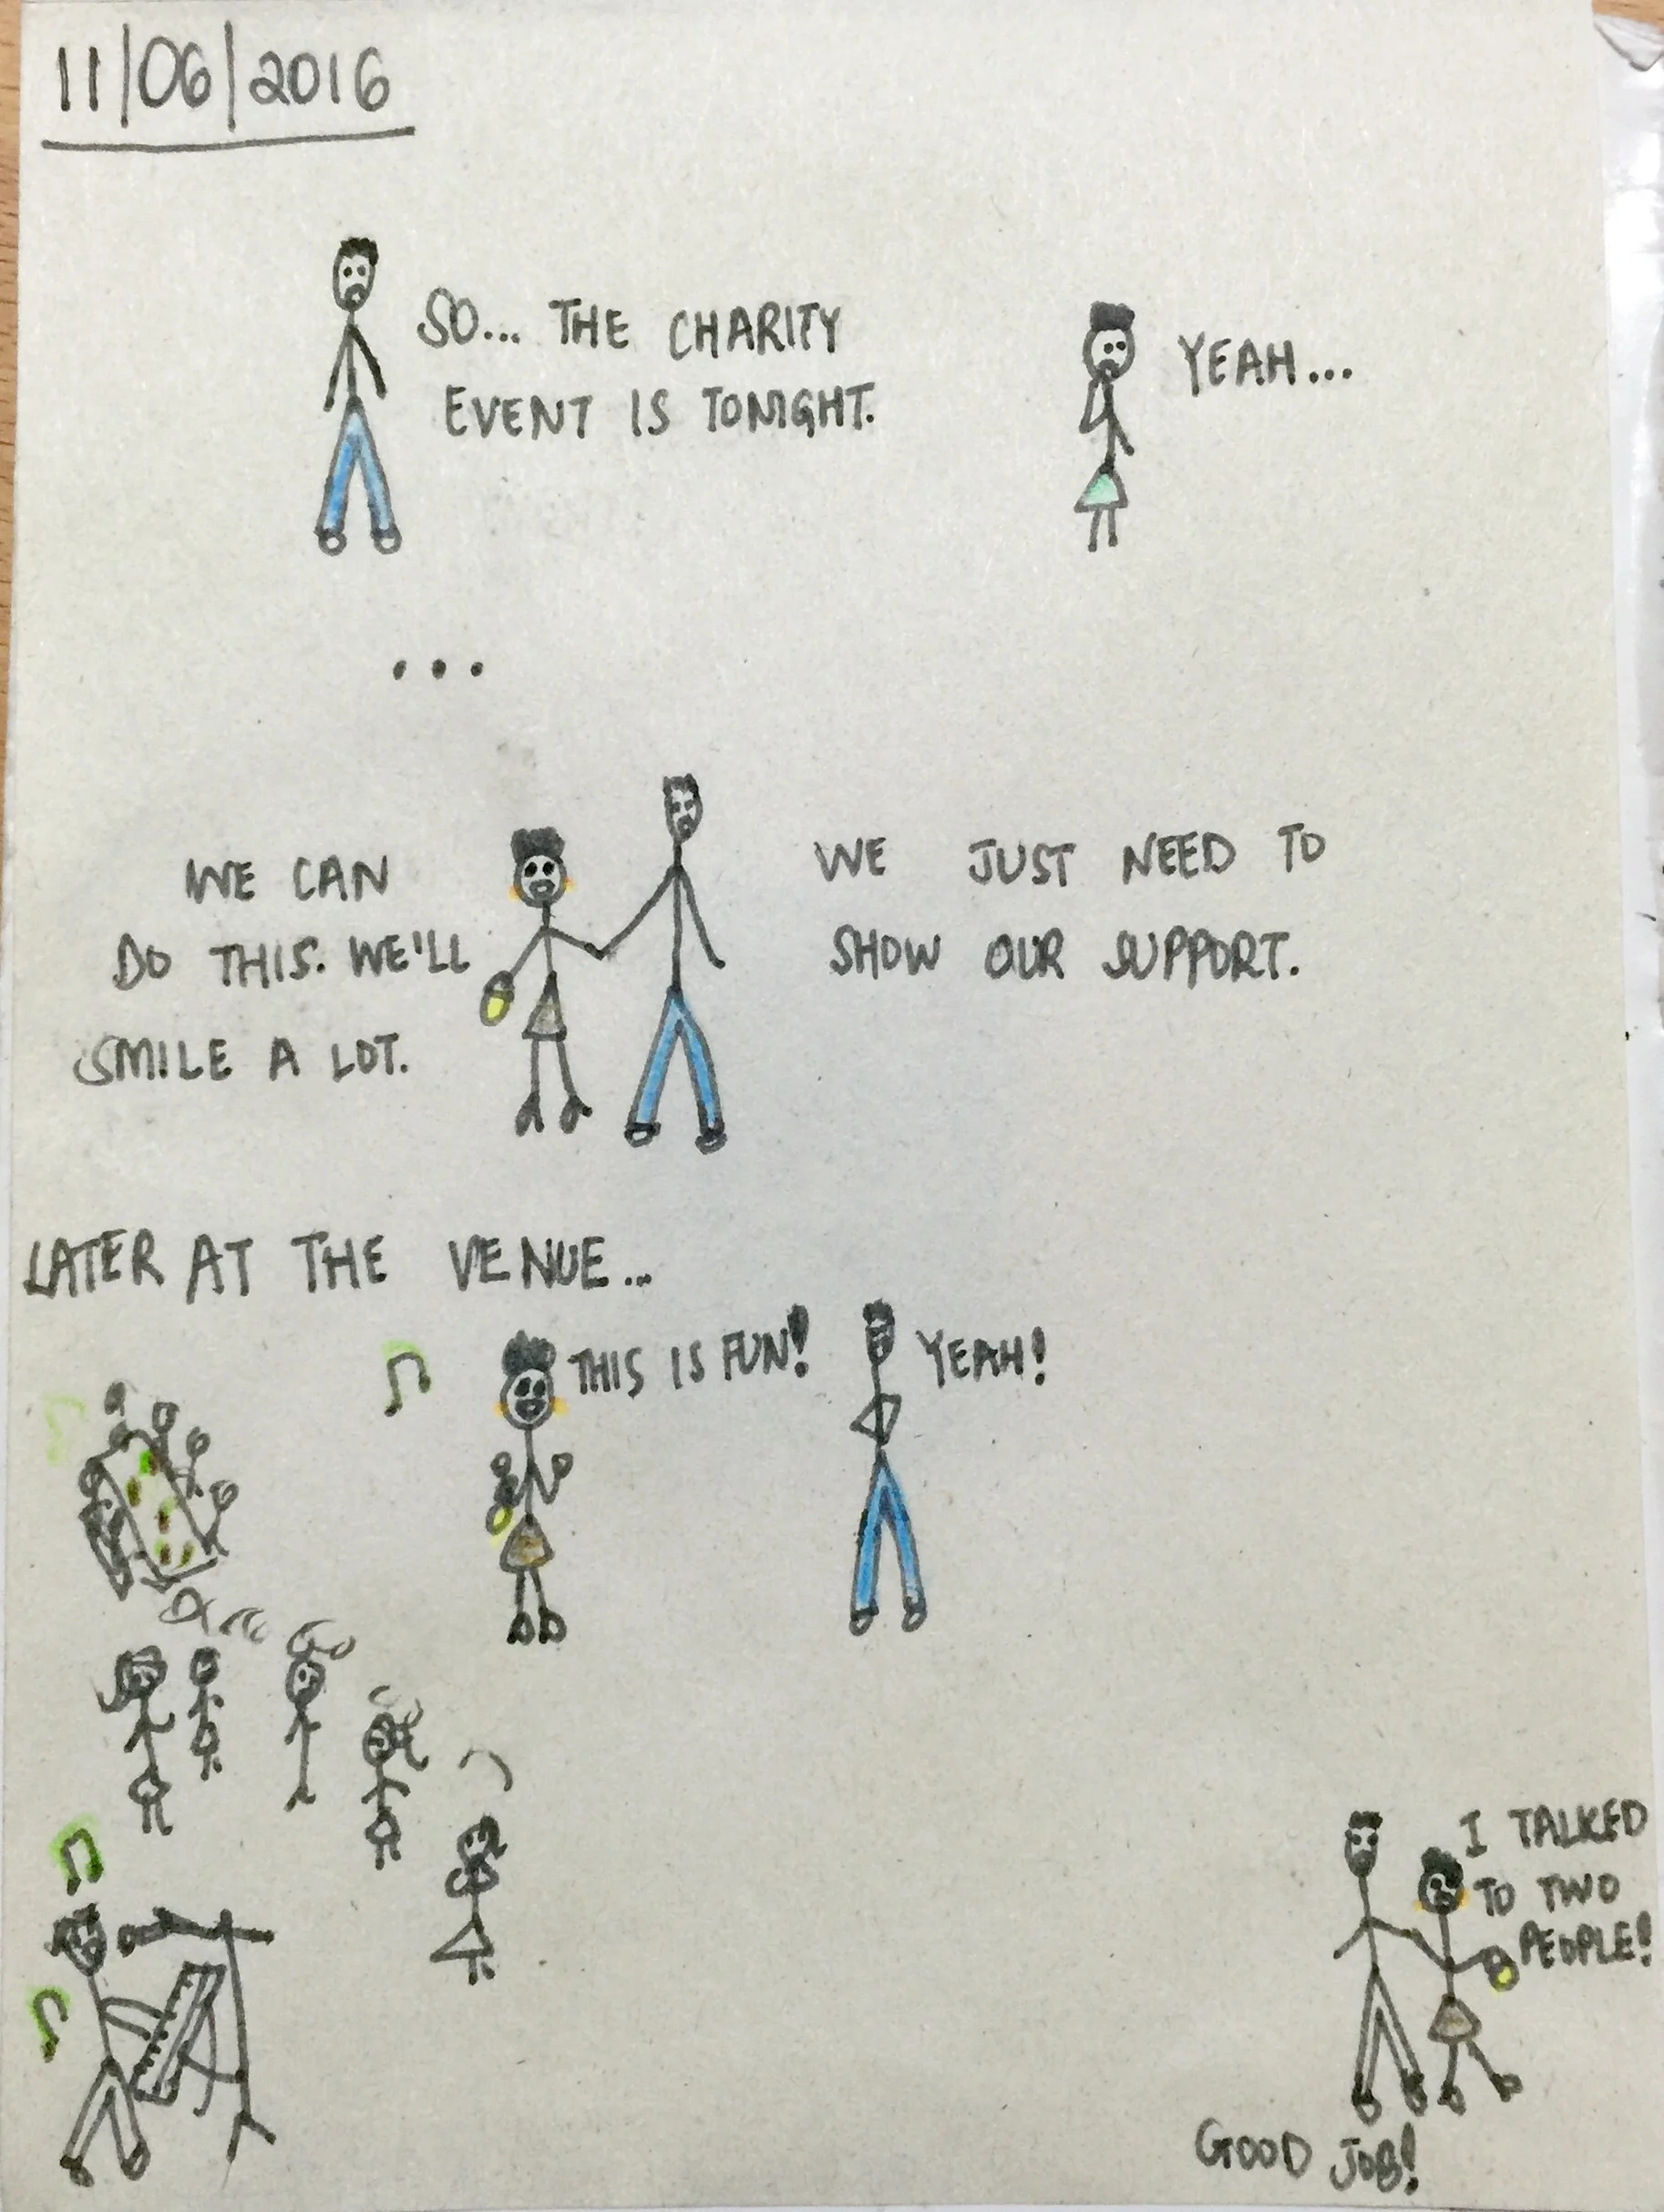 11/06/2016
SO... THE CHARITY
EVENT IS TONIGHT.
YEAH...
...
WE CAN
DO THIS. WE'LL
SMILE A LOT.
WE JUST NEED TO
SHOW OUR SUPPORT.
LATER AT THE VENUE...
THIS IS FUN!
YEAH!
I TALKED
TO TWO
PEOPLE!
GOOD JOB!